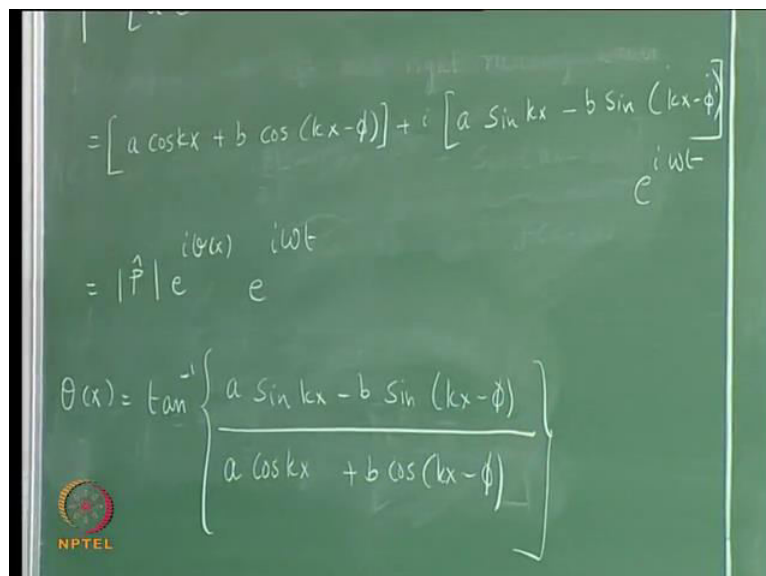 = [a cos kx + b cos (kx-ϕ)] + i [a sin kx - b sin (kx-ϕ)]
e^{iωt}
= |P̂| e^{iθ(x)} e^{iωt}
θ(x) = tan^{-1} { a sin kx - b sin (kx-ϕ)
a cos kx + b cos (kx-ϕ) }
NPTEL